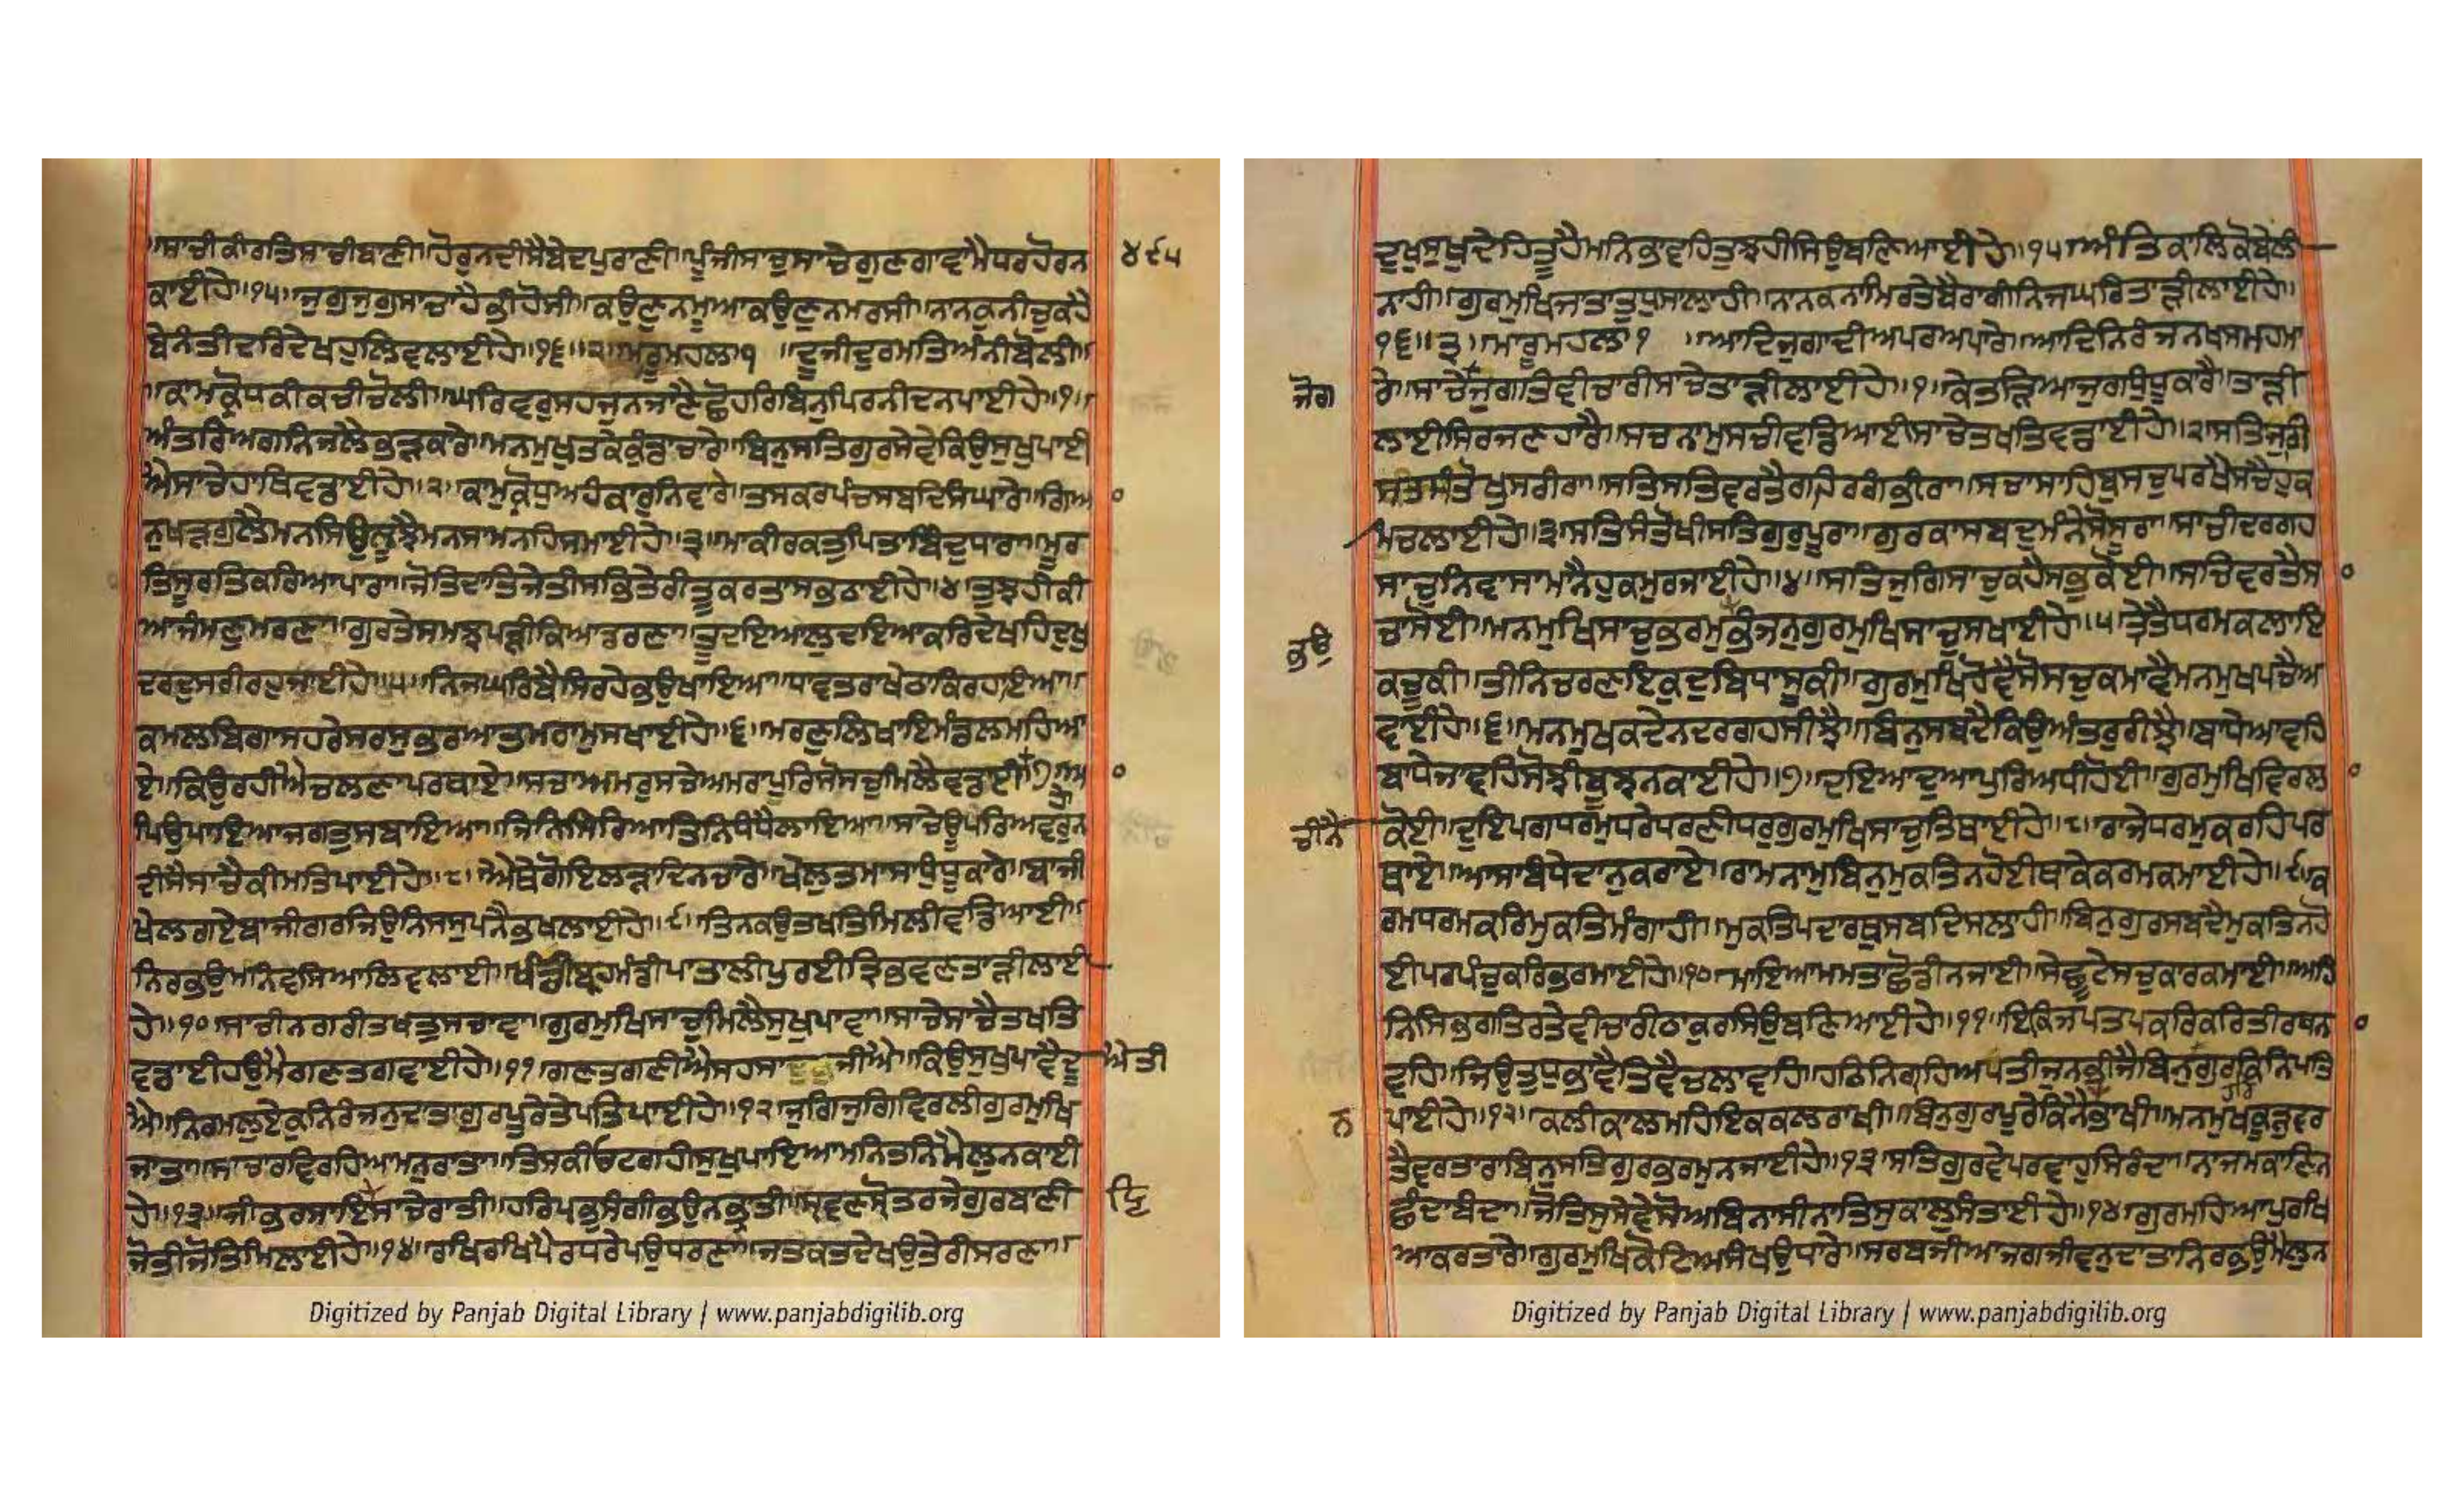 ॥ਸਾਚੀਕੀਰਤਿਸਾਚੀਬਾਣੀ॥ਹੋਰੁਨਦੀਸੈਬੇਦਪੁਰਾਣੀ॥ਪੂੰਜੀਸਾਚੁਸਾਚੇਗੁਣਗਾਵਾਮੈਧਰਹੋਰਨ
੪੯੫
ਕਾਈਹੇ॥੧੫॥ਜੁਗੁਜੁਗੁਸਾਚਾਹੈਭੀਹੋਸੀ॥ਕਉਣੁਨਮੂਆਕਉਣੁਨਮਰਸੀ॥ਨਾਨਕੁਨੀਚੁਕਹੈ
ਬੇਨੰਤੀਦਰਿਦੇਖਹੁਲਿਵਲਾਈਹੇ॥੧੬॥੨॥ਮਾਰੂਮਹਲਾ੧ ॥ਦੂਜੀਦੁਰਮਤਿਅੰਨੀਬੋਲੀ॥
॥ਕਾਮਕ੍ਰੋਧਕੀਕਚੀਚੋਲੀ॥ਘਰਿਵਰੁਸਹਜੁਨਜਾਣੈਛੋਹਰਿਬਿਨੁਪਿਰਨੀਦਨਪਾਈਹੇ॥੧॥
ਅੰਤਰਿਅਗਨਿਜਲੈਭੜਕਾਰੇ॥ਮਨਮੁਖੁਤਕੇਕੁੰਡਾਚਾਰੇ॥ਬਿਨੁਸਤਿਗੁਰਸੇਵੇਕਿਉਸੁਖੁਪਾਈ
ਐਸਾਚੇਹਾਥਿਵਡਾਈਹੇ॥੨॥ਕਾਮੁਕ੍ਰੋਧੁਅਹੰਕਾਰੁਨਿਵਾਰੇ॥ਤਸਕਰਪੰਚਸਬਦਿਸੰਘਾਰੇ॥ਗਿਆ
ਨਖੜਗੁਲੈਮਨਸਿਉਲੂਝੈਮਨਸਾਮਨਹਿਸਮਾਈਹੇ॥੩॥ਮਾਕੀਰਕਤੁਪਿਤਾਬਿੰਦੁਧਾਰਾ॥ਮੂਰ
ਤਿਸੂਰਤਿਕਰਿਆਪਾਰਾ॥ਜੋਤਿਦਾਤਿਜੇਤੀਸਭਤੇਰੀਤੂਕਰਤਾਸਭਠਾਈਹੇ॥੪॥ਤੁਝਹੀਕੀ
ਆਜੰਮਣੁਮਰਣਾ॥ਗੁਰਤੇਸਮਝਪੜੀਕਿਆਡਰਣਾ॥ਤੂਦਇਆਲੁਦਇਆਕਰਿਦੇਖਹਿਦੁਖੁ
ਦਰਦੁਸਰੀਰਹੁਜਾਈਹੇ॥੫॥ਨਿਜਘਰਿਬੈਸਿਰਹੇਭਉਖਾਇਆ॥ਧਾਵਤਰਾਖੇਠਾਕਿਰਹਾਇਆ॥
ਕਮਲਬਿਗਾਸਹਰੇਸਰਸੁਭਰਆਤਮਰਾਮੁਸਖਾਈਹੇ॥੬॥ਮਰਣੁਲਿਖਾਇਮੰਡਲਮਹਿਆ
ਏ॥ਕਿਉਰਹੀਐਚਲਣਾਪਰਥਾਏ॥ਸਚਾਅਮਰੁਸਚੇਅਮਰਾਪੁਰਿਸੋਸਚੁਮਿਲੈਵਡਾਈ॥੭॥ਆ
ਪਿਉਪਾਇਆਜਗਤੁਸਬਾਇਆ॥ਜਿਨਿਸਿਰਿਆਤਿਨਿਧੰਧੈਲਾਇਆ॥ਸਾਚੇਊਪਰਿਅਵਰੁਨ
ਦੀਸੈਸਾਚੈਕੀਮਤਿਪਾਈਹੇ॥੮॥ਐਥੇਗੋਇਲੜਾਦਿਨਚਾਰੇ॥ਖੇਲੁਤਮਾਸਾਧੁੰਧੂਕਾਰੇ॥ਬਾਜੀ
ਖੇਲਗਏਬਾਜੀਗਰਜਿਉਨਿਸਸੁਪਨੈਭਖਲਾਈਹੇ॥੯॥ਤਿਨਕਉਤਖਤਿਮਿਲੀਵਡਿਆਈ॥
ਨਿਰਭਉਮਨਿਵਸਿਆਲਿਵਲਾਈ॥ਖੰਡੀਬ੍ਰਹਮੰਡੀਪਾਤਾਲੀਪੁਰਈਤ੍ਰਿਭਵਣਤਾੜੀਲਾਈ
ਹੇ॥੧੦॥ਸਾਚੀਨਗਰੀਤਖਤੁਸਚਾਵਾ॥ਗੁਰਮੁਖਿਸਾਚੁਮਿਲੈਸੁਖੁਪਾਵਾ॥ਸਾਚੇਸਾਚੈਤਖਤਿ
ਵਡਾਈਹਉਮੈਗਣਤਗਵਾਈਹੇ॥੧੧॥ਗਣਤਗਣੀਐਸਹਸਾ ਜੀਐ॥ਕਿਉਸੁਖੁਪਾਵੈਦੂ
ਐਤੀ
ਐ॥ਨਿਰਮਲੁਏਕੁਨਿਰੰਜਨੁਦਾਤਾਗੁਰਪੂਰੇਤੇਪਤਿਪਾਈਹੇ॥੧੨॥ਜੁਗਿਜੁਗਿਵਿਰਲੀਗੁਰਮੁਖਿ
ਜਾਤਾ॥ਸਾਚਾਰਵਿਰਹਿਆਮਨੁਰਾਤਾ॥ਤਿਸਕੀਓਟਗਹੀਸੁਖੁਪਾਇਆਮਨਿਤਨਿਮੈਲੁਨਕਾਈ
ਹੇ॥੧੩॥ਜੀਭਰਸਾਇਸਾਚੇਰਾਤੀ॥ਹਰਿਪਭੁਸੰਗੀਭਉਨਭਾਤੀ॥ਸ੍ਰਵਣਸ੍ਰੋਤਰਜੇਗੁਰਬਾਣੀ
ਜੋਤੀਜੋਤਿਮਿਲਾਈਹੇ॥੧੪॥ਰਖਿਰਖਿਪੈਰਧਰੇਪਉਧਰਣਾ॥ਜਤਕਤਦੇਖਉਤੇਰੀਸਰਣਾ॥
Digitized by Panjab Digital Library | www.panjabdigilib.org
ਦੁਖੁਸੁਖੁਦੇਹਿਤੂਹੈਮਨਿਭਾਵਹਿਤੁਝਹੀਸਿਉਬਣਿਆਈਹੇ॥੧੫॥ਅੰਤਿਕਾਲਿਕੋਬੇਲੀ
ਨਾਹੀ॥ਗੁਰਮੁਖਿਜਾਤਾਤੁਧੁਸਾਲਾਹੀ॥ਨਾਨਕਨਾਮਿਰਤੇਬੈਰਾਗੀਨਿਜਘਰਿਤਾੜੀਲਾਈਹੇ॥
੧੬॥੩॥ਮਾਰੂਮਹਲਾ੧ ॥ਆਦਿਜੁਗਾਦੀਅਪਰਅਪਾਰੇ॥ਆਦਿਨਿਰੰਜਨਖਸਮਹਮਾ
ਰੇ॥ਸਾਚੇਜੁਗਤਿਵੀਚਾਰੀਸਾਚੇਤਾੜੀਲਾਈਹੇ॥੧॥ਕੇਤੜਿਆਜੁਗਧੁੰਧੂਕਾਰੈ॥ਤਾੜੀ
ਜੋਗ
ਲਾਈਸਿਰਜਣਹਾਰੈ॥ਸਚਨਾਮੁਸਚੀਵਡਿਆਈਸਾਚੈਤਖਤਿਵਡਾਈਹੇ॥੨॥ਸਤਿਜੁਗਿ
ਸਤਸੰਤੋਖੁਸਰੀਰਾ॥ਸਤਿਸਤਿਵਰਤੈਗਹਿਰਗੰਭੀਰਾ॥ਸਚਾਸਾਹਿਬੁਸਚੁਪਰਖੈਸਚੈਹੁਕ
ਮਿਚਲਾਈਹੇ॥੩॥ਸਤਿਸੰਤੋਖੀਸਤਿਗੁਰੁਪੂਰਾ॥ਗੁਰਕਾਸਬਦੁਮੰਨੇਸੋਸੂਰਾ॥ਸਾਚੀਦਰਗਹ
ਸਾਚੁਨਿਵਾਸਾਮਾਨੈਹੁਕਮੁਰਜਾਈਹੇ॥੪॥ਸਤਿਜੁਗਿਸਾਚੁਕਹੈਸਭੁਕੋਈ॥ਸਚਿਵਰਤੈਸਾ
ਚਾਸੋਈ॥ਮਨਮੁਖਿਸਾਚੁਭਰਮੁਭੰਜਨੁਗੁਰਮੁਖਿਸਾਚੁਸਖਾਈਹੇ॥੫॥ਤ੍ਰੇਤੈਧਰਮਕਲਾਇ
ਭਉ
ਕਚੂਕੀ॥ਤੀਨਿਚਰਣਇਕੁਦੁਬਿਧਾਸੂਕੀ॥ਗੁਰਮੁਖਿਹੋਵੈਸੋਸਚੁਕਮਾਵੈਮਨਮੁਖਪਚੈਅ
ਵਾਈਹੇ॥੬॥ਮਨਮੁਖਕਦੇਨਦਰਗਹਸੀਝੈ॥ਬਿਨੁਸਬਦੈਕਿਉਅੰਤਰੁਰੀਝੈ॥ਬਾਧੇਆਵਹਿ
ਬਾਧੇਜਾਵਹਿਸੋਝੀਬੂਝਨਕਾਈਹੇ॥੭॥ਦਇਆਦੁਆਪੁਰਿਅਧੀਹੋਈ॥ਗੁਰਮੁਖਿਵਿਰਲਾ
ਚੀਨੈ
ਕੋਈ॥ਦੁਇਪਗਧਰਮੁਧਰੇਧਰਣੀਧਰੁਗੁਰਮੁਖਿਸਾਚੁਤਿਥਾਈਹੇ॥੮॥ਰਾਜੇਧਰਮੁਕਰਹਿਪਰ
ਥਾਏ॥ਆਸਾਬੰਧੇਦਾਨੁਕਰਾਏ॥ਰਾਮਨਾਮੁਬਿਨੁਮੁਕਤਿਨਹੋਈਥਾਕੇਕਰਮਕਮਾਈਹੇ॥੯॥ਕ
ਰਮਧਰਮਕਰਿਮੁਕਤਿਮੰਗਾਹੀ॥ਮੁਕਤਿਪਦਾਰਥੁਸਬਦਿਸਲਾਹੀ॥ਬਿਨੁਗੁਰਸਬਦੈਮੁਕਤਿਨਹੋ
ਈਪਰਪੰਚੁਕਰਿਭਰਮਾਈਹੇ॥੧੦॥ਮਾਇਆਮਮਤਾਛੋਡੀਨਜਾਈ॥ਸੇਛੂਟੇਸਚੁਕਾਰਕਮਾਈ॥ਅਹਿ
ਨਿਸਿਭਗਤਿਰਤੇਵੀਚਾਰੀਠਾਕੁਰਸਿਉਬਣਿਆਈਹੇ॥੧੧॥ਇਕਿਜਪਤਪਕਰਿਕਰਿਤੀਰਥਨਾ
ਵਹਿ॥ਜਿਉਤੁਧੁਭਾਵੈਤਿਵੈਚਲਾਵਹਿ॥ਹਠਿਨਿਗ੍ਰਹਿਅਪਤੀਜੁਨਭੀਜੈਬਿਨੁਗੁਰਕਿਨਿਪਤਿ
ਪਾਈਹੇ॥੧੨॥ਕਲੀਕਾਲਮਹਿਇਕਕਲਰਾਖੀ॥ਬਿਨੁਗੁਰਪੂਰੇਕਿਨੈਭਾਖੀ॥ਮਨਮੁਖਕੂੜੁਵਰ
ਨ
ਤੈਵਰਤਾਰਾਬਿਨੁਸਤਿਗੁਰਭਰਮੁਨਜਾਈਹੇ॥੧੩॥ਸਤਿਗੁਰਵੇਪਰਵਾਹੁਸਿਰੰਦਾ॥ਨਾਜਮਕਾਣਿਨ
ਛੰਦਾਬੰਦਾ॥ਜੋਤਿਸੁਸੇਵੇਸੋਅਬਿਨਾਸੀਨਾਤਿਸੁਕਾਲੁਸੰਤਾਈਹੇ॥੧੪॥ਗੁਰਮਹਿਆਪੁਰਖਿ
ਆਕਰਤਾਰੇ॥ਗੁਰਮੁਖਿਕੋਟਿਅਸੰਖਉਧਾਰੇ॥ਸਰਬਜੀਆਜਗਜੀਵਨੁਦਾਤਾਨਿਰਭਉਮੈਲੁਨ
Digitized by Panjab Digital Library | www.panjabdigilib.org